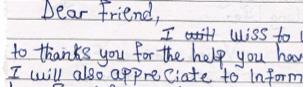 Dear friend,
I wiss to
to thanks you for the help you hav
I will also appreciate to Inform